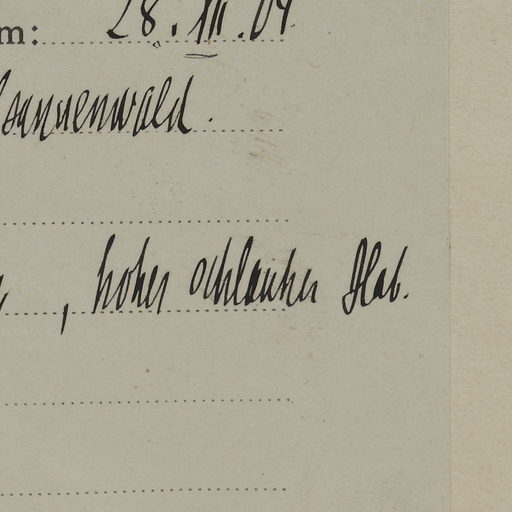 m: 28.XII.04.
sannenwald.
, hoher schlanker Hab.